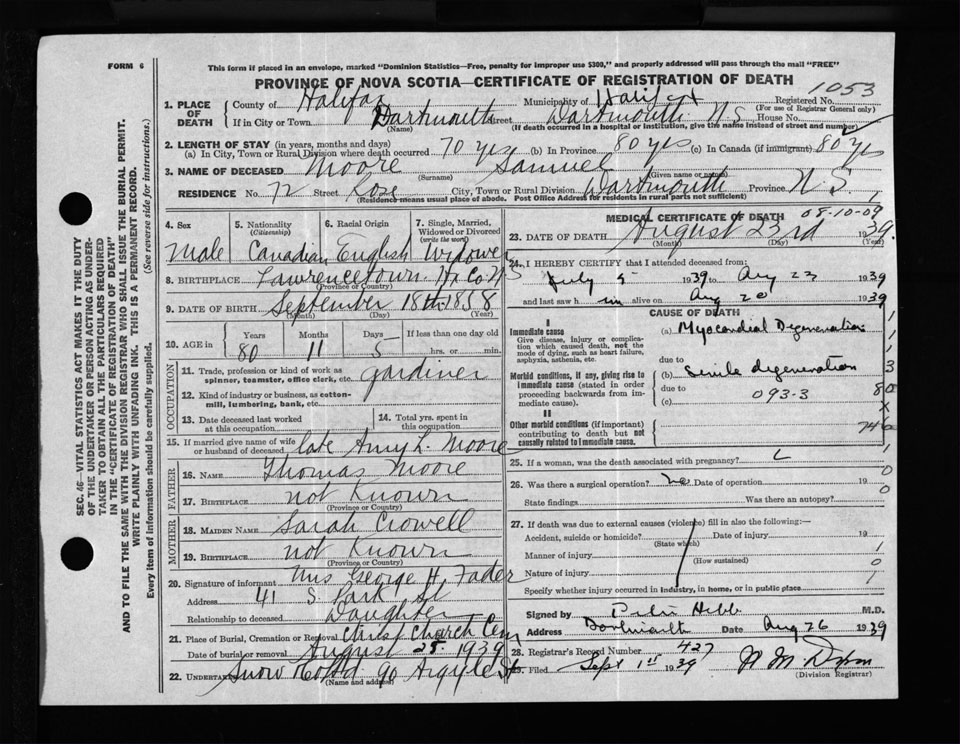 FORM 6
This form if placed in an envelope, marked "Dominion Statistics—Free, penalty for improper use $300," and properly addressed will pass through the mail "FREE"
PROVINCE OF NOVA SCOTIA—CERTIFICATE OF REGISTRATION OF DEATH
1053
1. PLACE OF DEATH County of Halifax Municipality of Halifax Registered No.
(For use of Registrar General only)
If in City or Town Dartmouth Street Dartmouth N S House No.
(Name) (If death occurred in a hospital or institution, give the name instead of street and number)
2. LENGTH OF STAY (in years, months and days)
(a) In City, Town or Rural Division where death occurred 70 yrs (b) In Province 80 yrs (c) In Canada (if immigrant) 80 yrs
3. NAME OF DECEASED Moore Samuel
(Surname) (Given name or names)
RESIDENCE No. 72 Street Rose City, Town or Rural Division Dartmouth Province N. S.
(Residence means usual place of abode. Post Office Address for residents in rural parts not sufficient)
4. Sex 5. Nationality (Citizenship) 6. Racial Origin 7. Single, Married, Widowed or Divorced (write the word)
Male Canadian English Widower
8. BIRTHPLACE Lawrencetown Hx Co N S
(Province or Country)
9. DATE OF BIRTH September 18th 1858
(Month) (Day) (Year)
10. AGE in Years Months Days If less than one day old
80 11 5 hrs. or min.
OCCUPATION
11. Trade, profession or kind of work as spinner, teamster, office clerk, etc. gardiner
12. Kind of industry or business, as cotton-mill, lumbering, bank, etc.
13. Date deceased last worked at this occupation
14. Total yrs. spent in this occupation
15. If married give name of wife or husband of deceased late Amy L. Moore
FATHER
16. NAME Thomas Moore
17. BIRTHPLACE not Known
(Province or Country)
MOTHER
18. MAIDEN NAME Sarah Crowell
19. BIRTHPLACE not Known
(Province or Country)
20. Signature of informant Mrs George H. Fader
Address 41 S Park St
Relationship to deceased Daughter
21. Place of Burial, Cremation or Removal Christ Church Cem
Date of burial or removal August 25. 1939
22. UNDERTAKER Snow Co Ltd 90 Argyle St
(Name and address)
MEDICAL CERTIFICATE OF DEATH 08-10-09
23. DATE OF DEATH August 23rd 1939
(Month) (Day) (Year)
24. I HEREBY CERTIFY that I attended deceased from
July 5 1939 to Aug 23 1939
and last saw him alive on Aug 20 1939
CAUSE OF DEATH
I
Immediate cause
Give disease, injury or complication which caused death, not the mode of dying, such as heart failure, asphyxia, asthenia, etc.
(a) Myocardial Degeneration
due to
Morbid conditions, if any, giving rise to immediate cause (stated in order proceeding backwards from immediate cause).
(b) Senile degeneration
due to
(c) 093-3
II
Other morbid conditions (if important) contributing to death but not causally related to immediate cause.
25. If a woman, was the death associated with pregnancy?
26. Was there a surgical operation? no Date of operation 19
State findings Was there an autopsy?
27. If death was due to external causes (violence) fill in also the following:—
Accident, suicide or homicide? Date of injury 19
(State which)
Manner of injury
(How sustained)
Nature of injury
Specify whether injury occurred in industry, in home, or in public place
Signed by Hebb M.D.
Address Dartmouth Date Aug 26 1939
28. Registrar's Record Number 427
29. Filed Sept 1st 1939
(Division Registrar)
SEC. 46—VITAL STATISTICS ACT MAKES IT THE DUTY
OF THE UNDERTAKER OR PERSON ACTING AS UNDER-
TAKER TO OBTAIN ALL THE PARTICULARS REQUIRED
IN THE "CERTIFICATE OF REGISTRATION OF DEATH"
AND TO FILE THE SAME WITH THE DIVISION REGISTRAR WHO SHALL ISSUE THE BURIAL PERMIT.
WRITE PLAINLY WITH UNFADING INK. THIS IS A PERMANENT RECORD.
Every item of information should be carefully supplied. (See reverse side for instructions.)